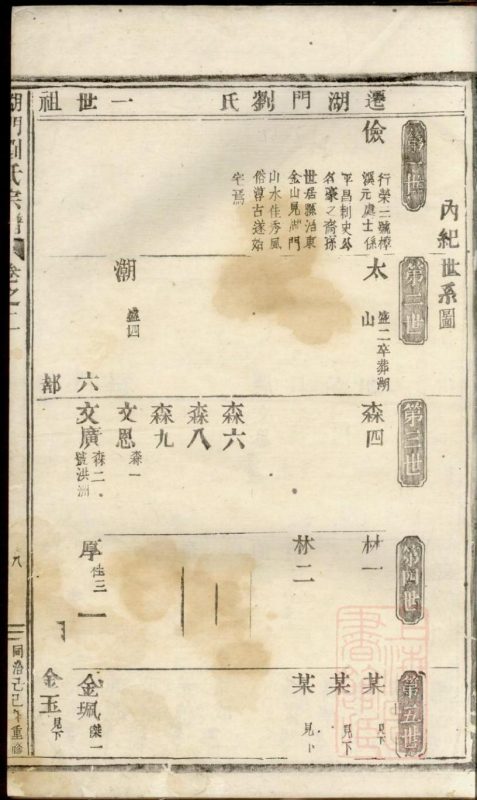 遷湖門劉氏一世祖
內紀世系圖
第一世
儉
行榮二號樟
溪元處士係
平昌刺史公
名豪之裔孫
世居縣治東
金山見湖門
山水佳秀風
俗淳古遂始
宅焉
第二世
太
盛二卒葬湖
山
潮
盛四
六
都
第三世
森四
森六
森八
森九
文恩
森一
文廣
森二
號洪洲
第四世
林一
林二
厚一
佳三
第五世
某
見下
某
見下
某
見下
金珮
傑一
金玉
見下
湖門劉氏宗譜
卷之二
八
同治己巳年重修